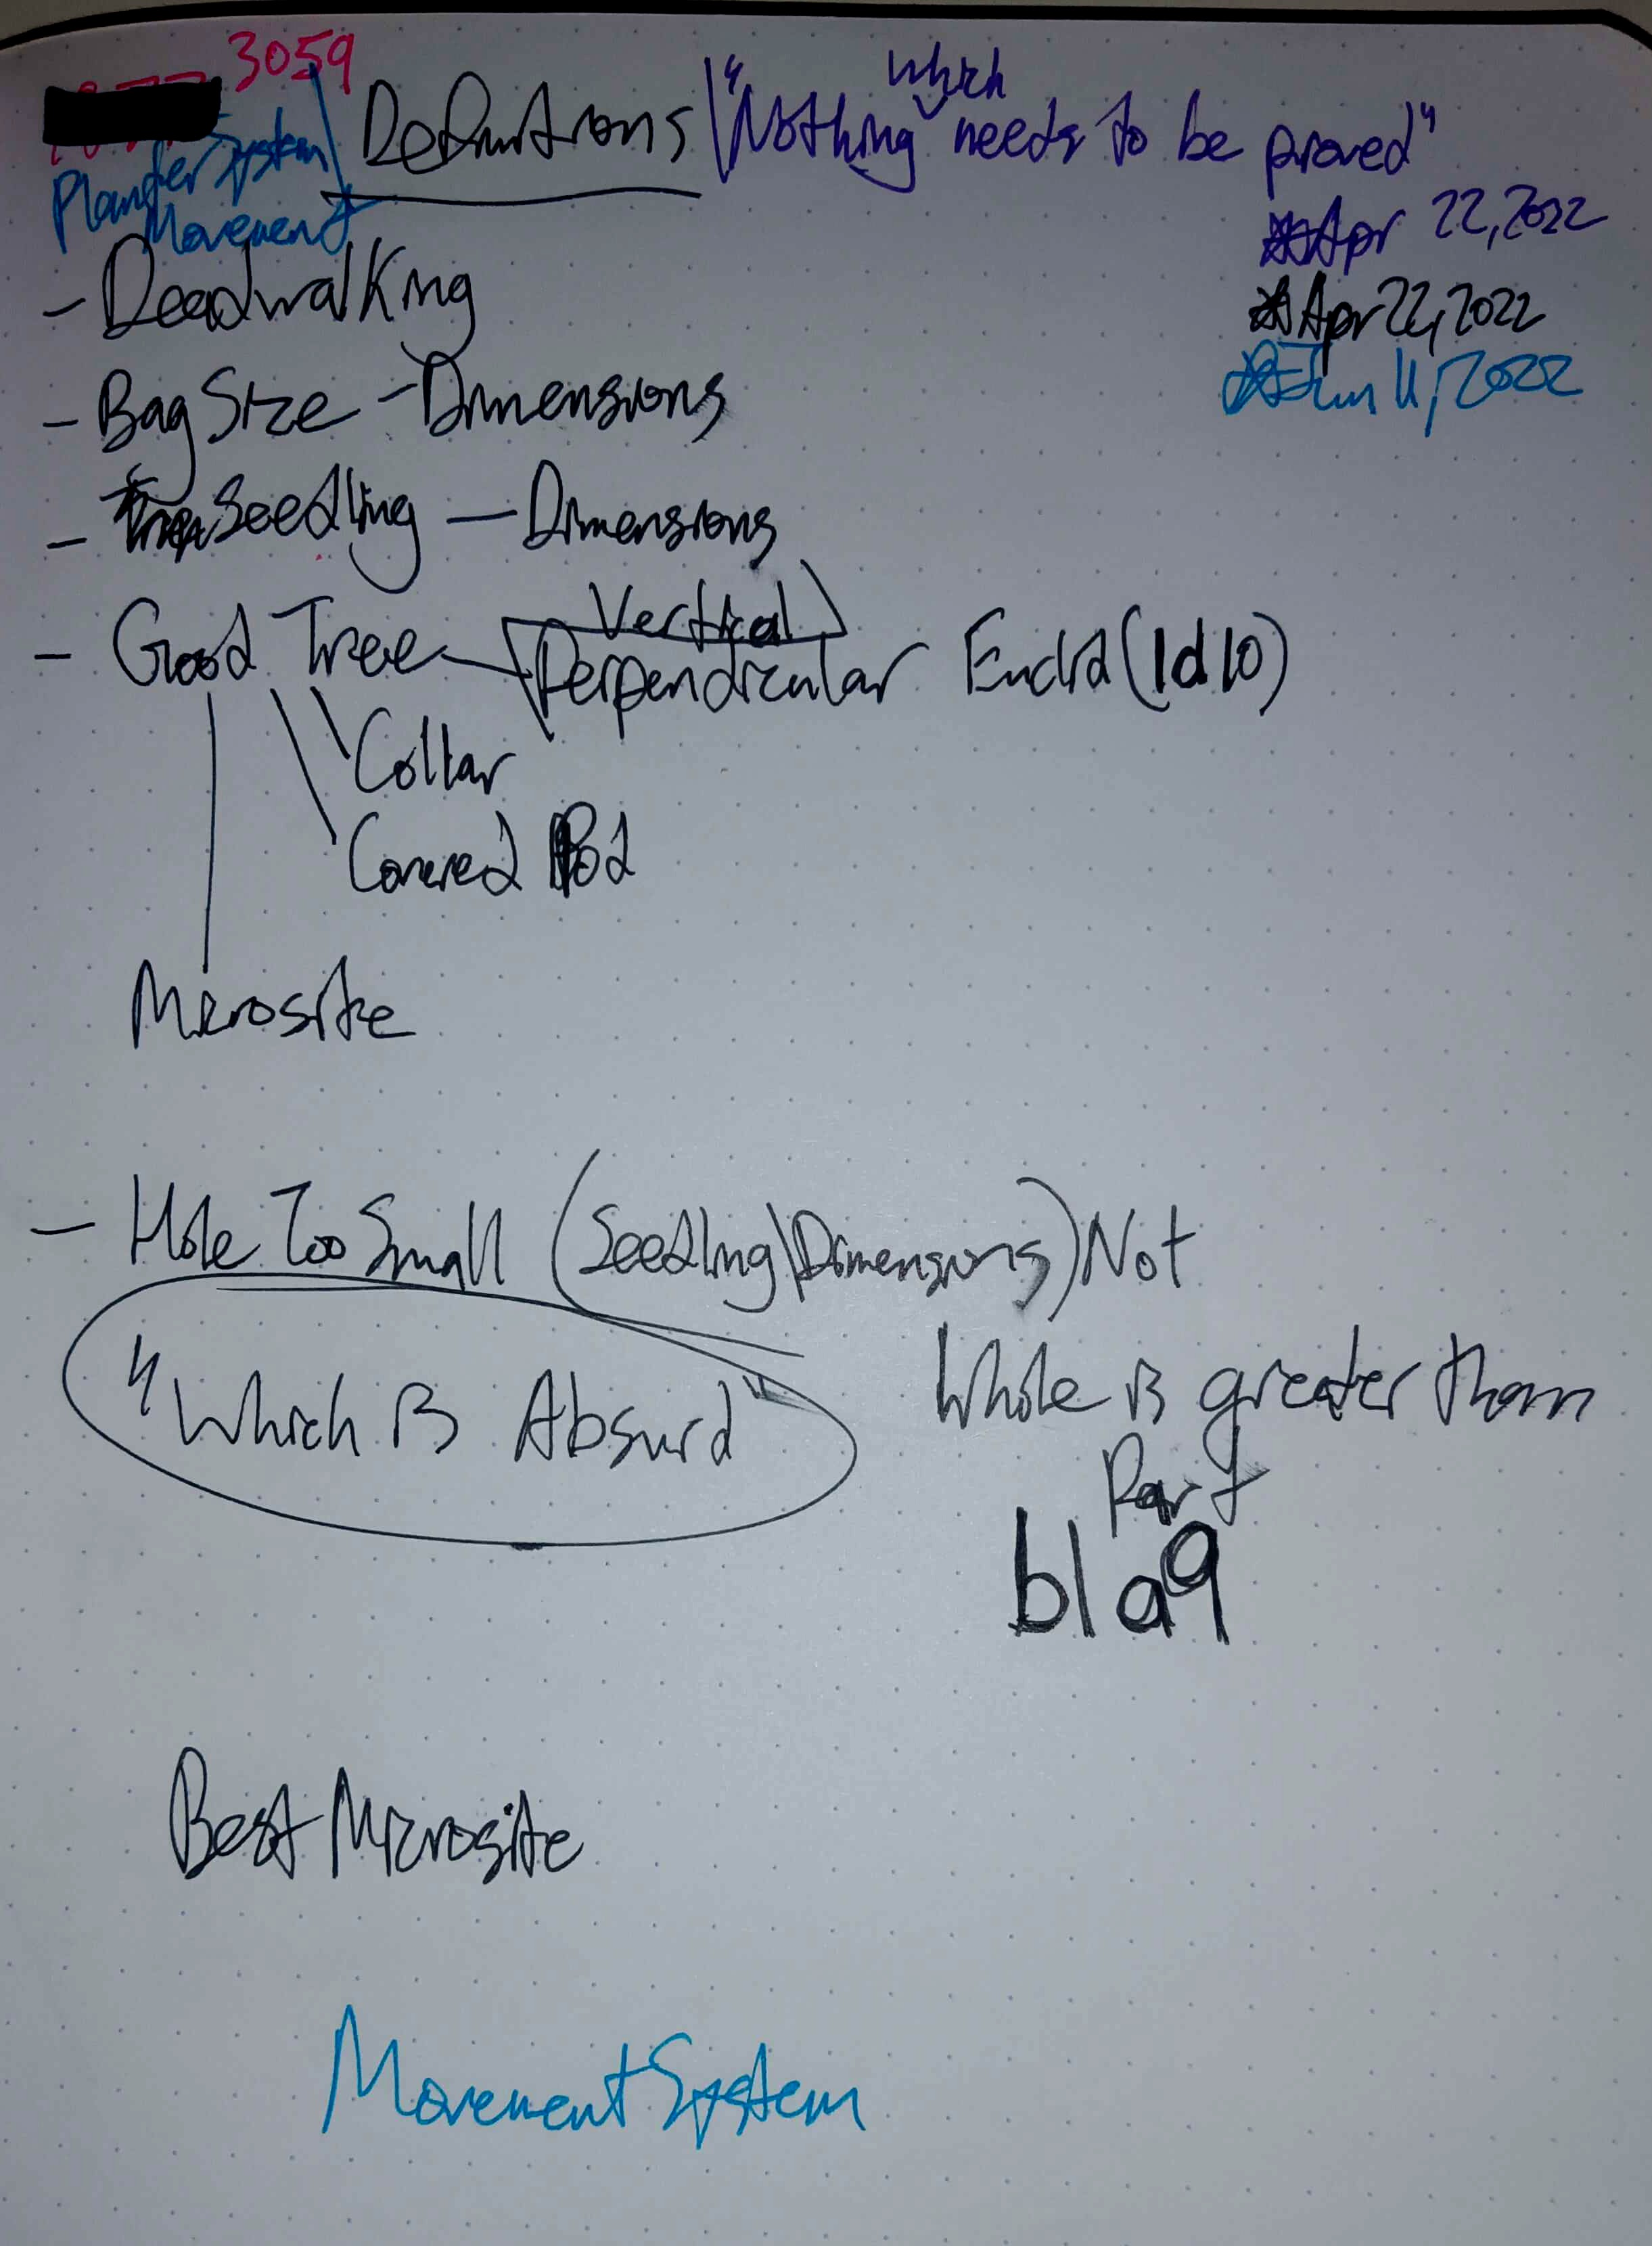 3059
Planter System Movement
Definitions "Nothing which needs to be proved"
Apr 22, 2022
Apr 22, 2022
Jun 11, 2022
- Deadwalking
- Bag Size - Dimensions
- Seedling - Dimensions
- Good Tree - Vertical
Perpendicular Euclid (1d10)
Collar
Covered Pod
Microsite
- Hole Too Small (Seedling\Dimensions) Not
"Which is Absurd"
Whole is greater than
Part
b1a9
Best Microsite
Movement System